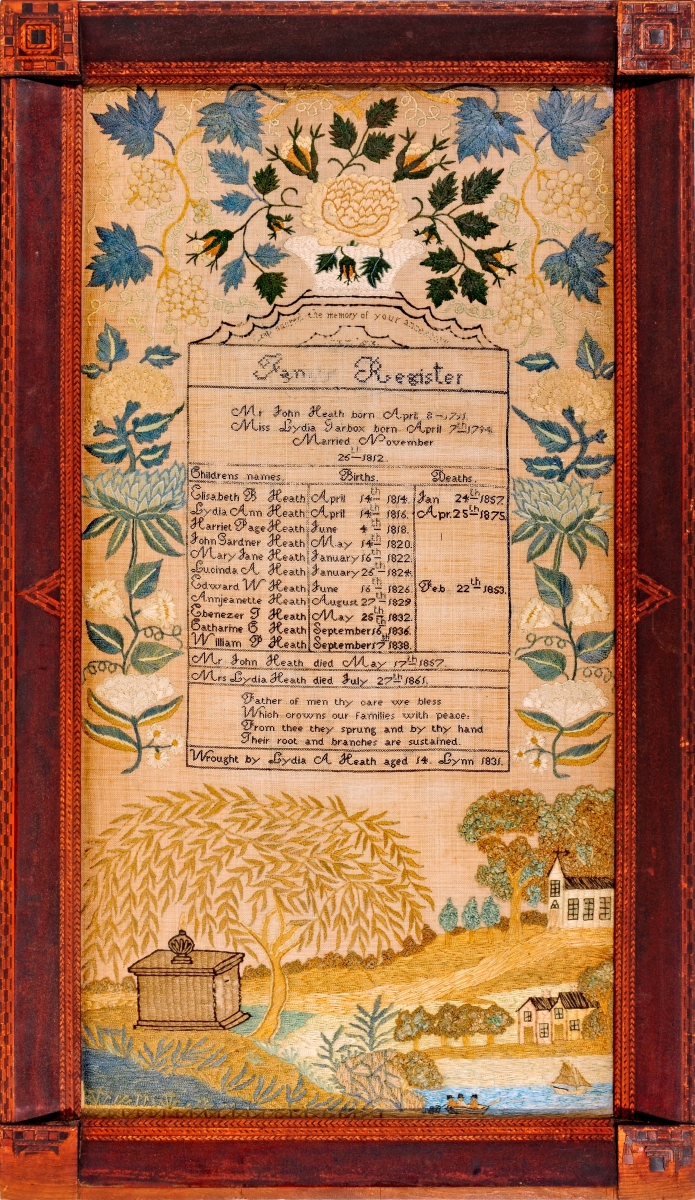 the memory of your
Family Register
Mr John Heath born April 8–
Miss Lydia Tarbox born April 7th 1794.
Married November
26th 1812.
Childrens names. Births. Deaths.
Elisabeth Heath April 14th 1814. Jan 24th 1857.
Lydia Ann Heath April 14th 1816. Apr. 25th 1875.
Harriet Page Heath June 4th 1818.
John Gardner Heath May 14th 1820.
Mary Jane Heath January 16th 1822.
Lucinda A. Heath January 26th 1824.
Edward W Heath June 16th 1826. Feb. 22th 1863.
Annjeanette Heath August 27th 1829
Ebenezer Heath May 25th 1832.
Catharine E Heath September 16th 1836.
William Heath September 17th 1838.
Mr John Heath died May 17th 1857.
Mrs Lydia Heath died July 27th 1861.
Father of men thy care we bless
Which crowns our families with peace:
From thee they sprung and by thy hand
Their root and branches are sustained.
Wrought by Lydia A Heath aged 14. Lynn 1831.